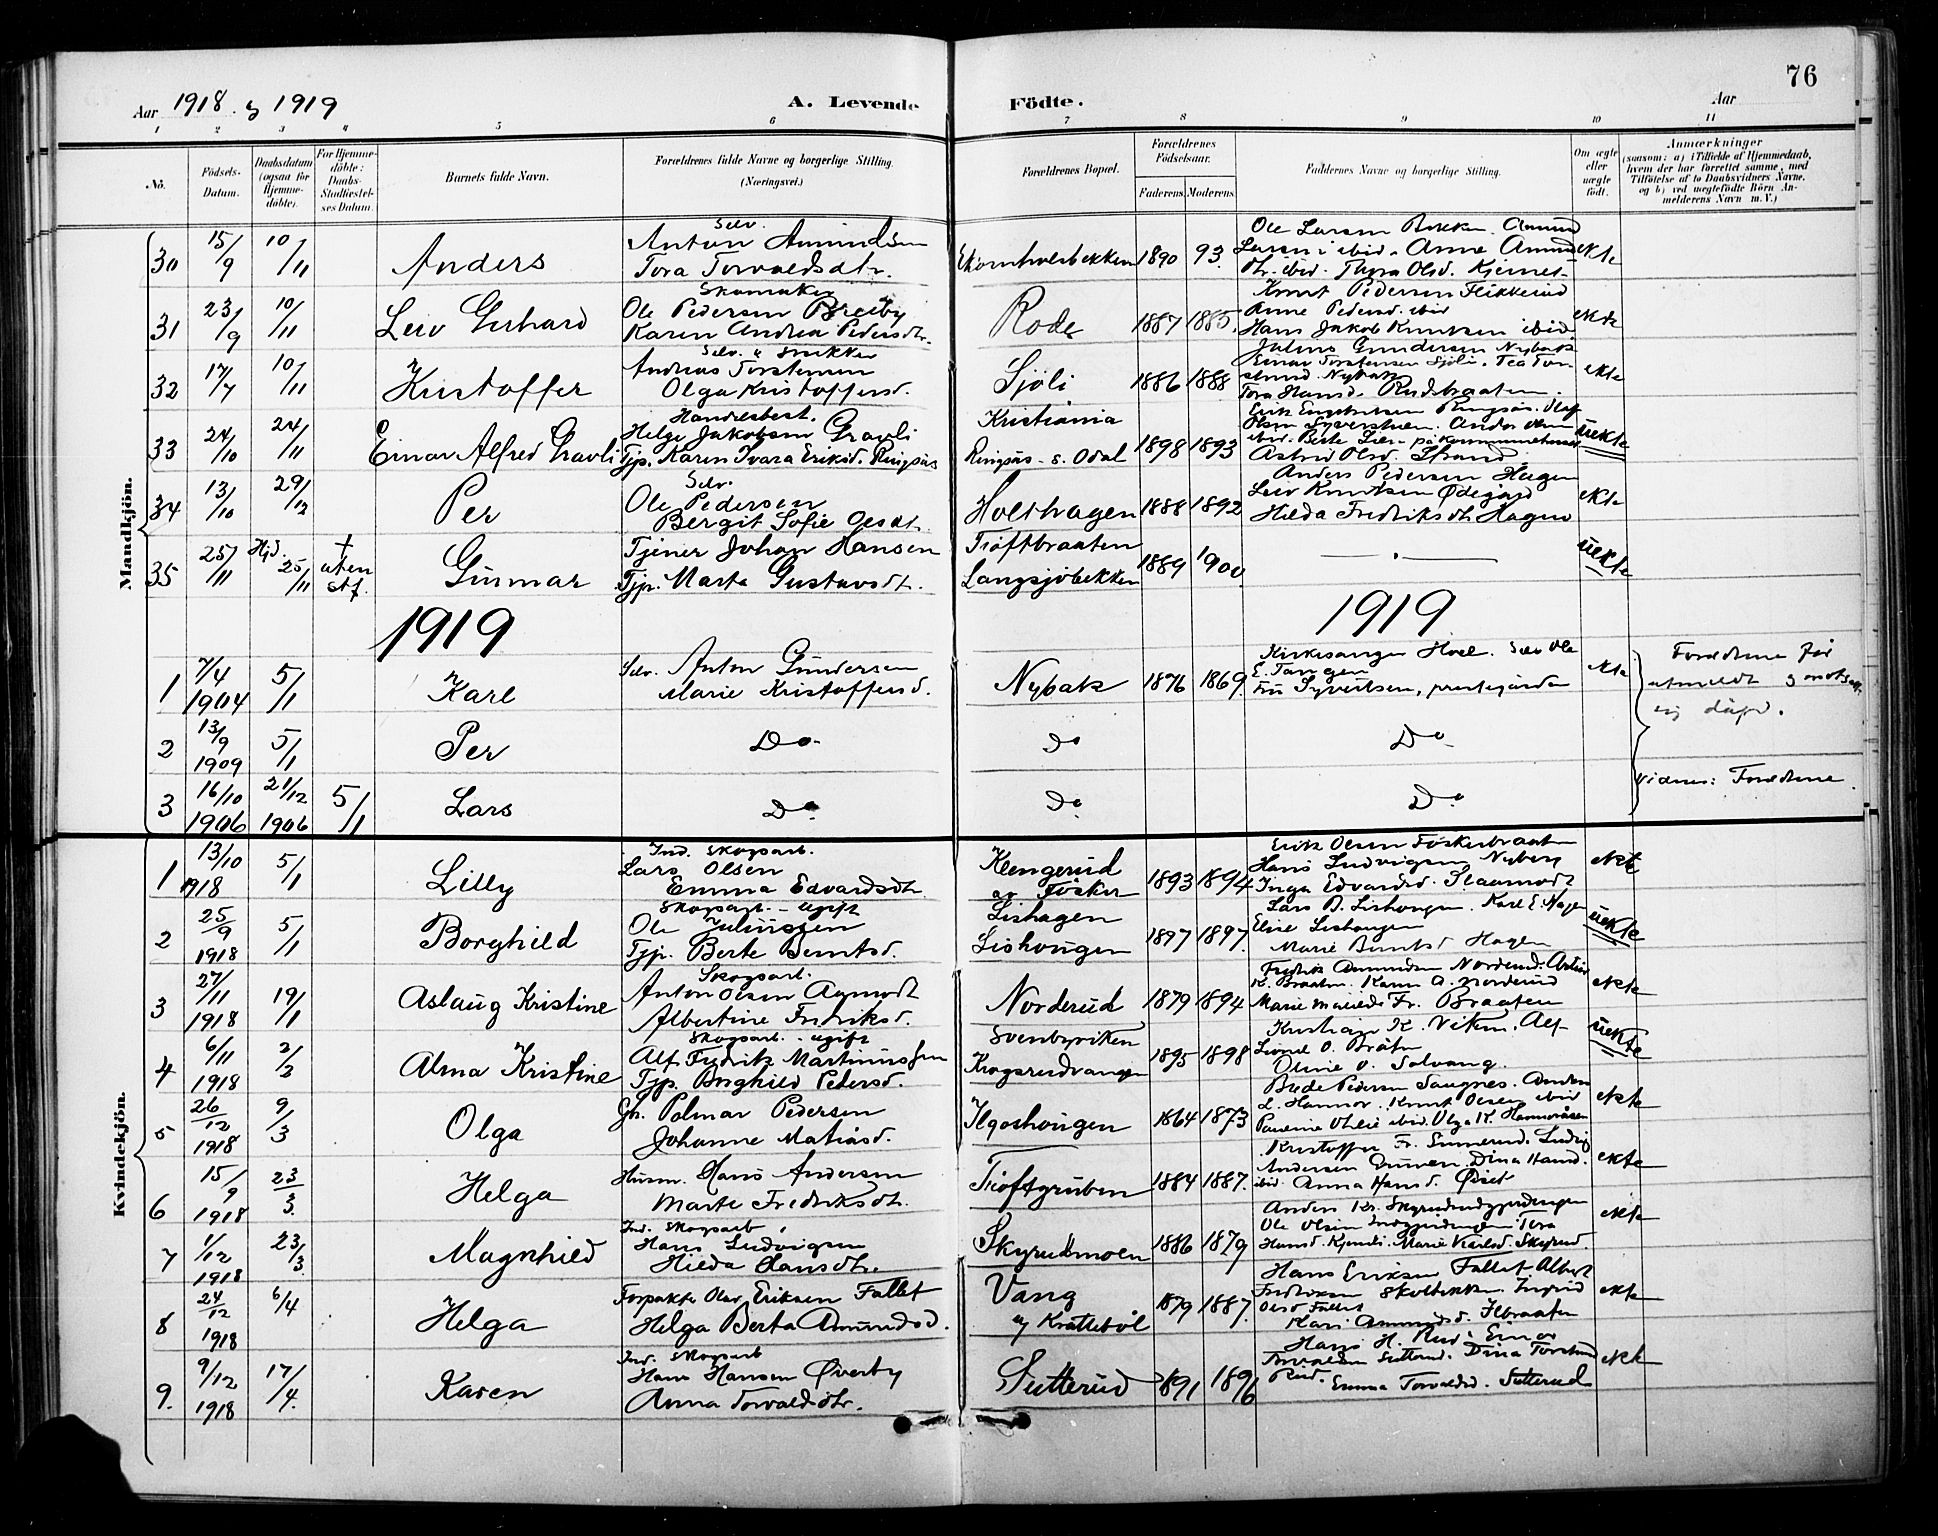 76
Aar 1918 og 1919 A. Levende Födte. Aar
1 2 3 4 5 6 7 8 9 10 11
No. Födsels-Datum. Daabsdatum (ogsaa for Hjemmedöbte). For Hjemmedöbte: Daabs-Stadfæstelses Datum. Barnets fulde Navn. Forældrenes fulde Navne og borgerlige Stilling. (Næringsvei.) Forældrenes Bopæl. Forældrenes Födselsaar. Faderens. Moderens. Faddernes Navne og borgerlige Stilling. Om ægte eller uægte födt. Anmærkninger (saasom: a) i Tilfælde af Hjemmedaab, hvem der har forrettet samme, med Tilföielse af to Daabsvidners Navne, og b) ved uægtefödte Börn Anmelderens Navn m. V.)
Mandkjön.
30 15/9 10/11 Anders Selv. Anton Amundsen Tora Torvaldsdtr. 1890 93. Ole Larsen Bekken. Amund Larsen ibid. Anne Amundsdtr. ibid. Thyra Olsd. Kjernes ekte
31 23/9 10/11 Leiv Gerhard Skomaker Ole Pedersen Breiby Karen Andrea Pedersdtr. Rode 1887 1885. Knut Pedersen Flikkerud Anne Pedersd. ibid Hans Jakob Knutsen ibid ekte
32 17/7 10/11 Kristoffer Selv. & Snikker Andreas Torstensen Olga Kristoffersd. Sjöli 1886 1888 Julius Gundersen Nybak Einar Torstensen Sjöli. Tea Nybak Tora Hansd. Rudsbraaten. ekte
33 24/10 24/11 Einar Alfred Gravli Handelsbest. Helge Jakobsen Gravli Tjp. Karen Ivara Eriksd. Ringsås Kristiania Ringsås - s. Odal 1898 1893 Erik Engebretsen Ringsås. Olaf Olsen Syverstuen. ibid. Berte Lien på kommunehuset Astrid Olsd. Strand uekte
34 13/10 29/12 Per Selv. Ole Pedersen Bergit Sofie Olsdt. Holthagen 1888 1892 Anders Pedersen Hagen Leiv Knutsen Ødegård Hilda Fredriksdt. Hagen ekte
35 25/11 Hjd. 25/11 † uten stf. Gunnar Tjener Johan Hansen Tjp. Marta Gustavsdt. Tröftbraaten Langsjöbekken 1889 1900 — uekte
1919 1919
1 7/4 1904 5/1 Karl Selv. Anton Gundersen Marie Kristoffersd. Nybak 1876 1869. Kirkesanger Hoel. Selv. Ole E. Tangen Fru Syvertsen, prestegården ekte Foreldrene før utmeldt
2 13/9 1909 5/1 Per Do. Do Do
3 16/10 1906 21/12 1906 5/1 Lars Do. Do Do. Vidner: Foreldrene.
Kvindekjön.
1 13/10 1918 5/1 Lilly Ind. Skogsarb. Lars Olsen Emma Edvardsdtr. Klengerud av Fösker 1893 1894 Erik Olsen Föskerbraaten Hans Ludvigsen Nyberg Inga Edvardsd. Slaamodt ekte
2 25/9 1918 5/1 Borghild Skogsarb. - ugift Ole Juliussen Tjp. Berte Berntsd. Lishagen Lishougen 1897 1897. Lars B. Lishougen. Karl E. Hagen Elise Lishougen Marie Berntsd Hagen uekte
3 27/11 1918 19/1 Aslaug Kristine Skogsarb. Anton Olsen Aamodt Albertine Fredriksd. Norderud 1879 1894 Fredrik Amundsen Norderud. Artur K. Braaten. Karen A. Norderud Marie Matilde Fr. Braaten ekte
4 6/11 1918 2/2 Alma Kristine Skogsarb. - ugift Alf Fredrik Martinussen Tjp. Borghild Pedersd. Svenbyviken Krogsrudvangen 1895 1898 Kristian K. Viken. Alf Sivert O. Bråten Oline O. Solvang. uekte
5 26/12 1918 9/3 Olga Gh. Polmar Pedersen Johanne Matiasd. Ilqoshougen 1864 1873 Brede Pedersen Saugnes. Anders L. Hammer. Knut Olsen ibid Pauline O. Lie ibid. Olga K. Hammeråsen ekte
6 15/9 1918 23/3. Helga Husm. Hans Andersen Marte Fredriksdtr. Tröftgruben 1884 1887. Kristoffer Fr. Sunnerud. Ludvig Andersen Gruben. Dina Hansd. ibid. Anna Hansd. Öiset ekte
7 1/12 1918 23/3. Magnhild Ind. Skogsarb. Hans Ludvigsen Hilda Hansdtr. Skyrudsmoen 1886 1879 Anders Kr. Skyrud Ole Olsen Tora Hansd. Kjensli. Marie Karlsd. Skyrud. ekte
8 24/12 1918 6/4 Helga Forpakter Olav Eriksen Fallet Helga Berta Amundsd. Vang og Kråtteböl 1879 1887. Hans Eriksen Fallet Albert Fredriksen Skolbekken. Ingrid Olsd. Fallet Mari Amundsd. Ilbraaten ekte
9. 9/12 1918 17/4. Karen Ind. Skogsarb Hans Hansen Øverby Anna Torvaldsdtr. Sutterud 1891 1896 Hans H. Rud. Einar Torvaldsen Sutterud. Dina Torstensd Rud. Emma Torvaldsd. Sutterud ekte